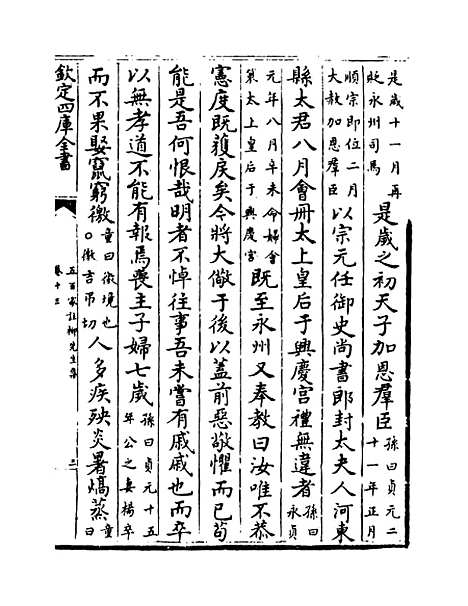 是歲十一月再
貶永州司馬
是歲之初天子加恩羣臣
孫曰貞元二
十一年正月
順宗即位二月
大赦加恩羣臣
以宗元任御史尚書郎封太夫人河東
縣太君八月會冊太上皇后于興慶宮禮無違者
孫曰
永貞
元年八月辛未命婦會
策太上皇后于興慶宫
既至永州又奉教曰汝唯不恭
憲度既獲戾矣今將大儆于後以蓋前惡敬懼而已苟
能是吾何恨哉明者不悼往事吾未嘗有戚戚也而卒
以無孝道不能有報焉喪主子婦七歲
孫曰貞元十五
年公之妻楊卒
而不果娶竄窮徼
童曰徼境也
○徼吉弔切
人多疾殃炎暑熇蒸
童
曰
欽定四庫全書
五百家註柳先生集
卷十三
三